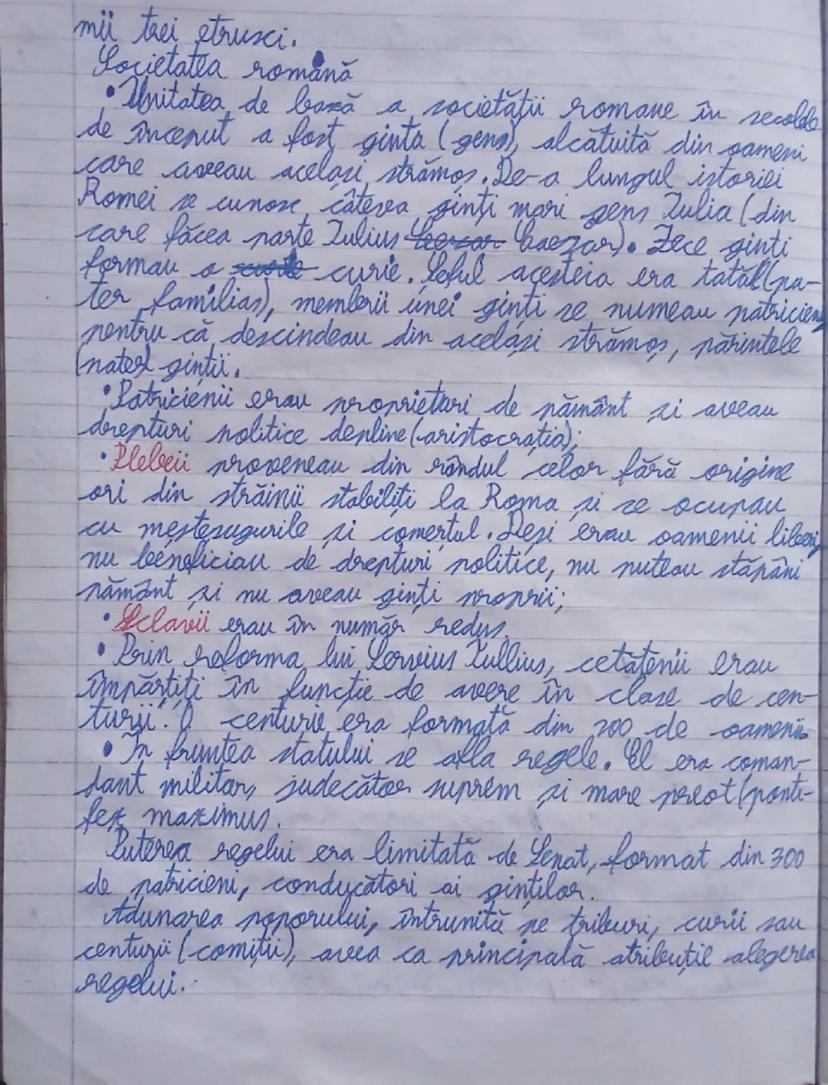 mii trei etrusci.
Societatea română
• Unitatea de bază a societății romane în secolele
de început a fost ginta (gens), alcătuită din oameni
care aveau același strămoș. De-a lungul istoriei
Romei se cunosc câteva ginți mari gens Iulia (din
care făcea parte Iulius Caezar). Zece ginți
formau o curie. Șeful acesteia era tatăl (pa-
ter familias), memberii unei ginți se numeau patricieni
pentru că descindeau din același strămoș, părintele
(pater) gintii.
• Patricienii erau proprietari de pământ și aveau
drepturi politice depline (aristocrația);
• Plebeii proveneau din rândul celor fără origine
ori din străinii stabiliți la Roma și se ocupau
cu meșteșugurile și comerțul. Deși erau oamenii liberi,
nu beneficiau de drepturi politice, nu puteau stăpâni
pământ și nu aveau ginți proprii;
• Sclavii erau în număr redus.
• Prin reforma lui Servius Tullius, cetățenii erau
împărțiți în funcție de avere în clase de cen-
turii. O centurie era formată din 200 de oameni.
• În fruntea statului se afla regele. El era coman-
dant militar, judecător suprem și mare preot (ponti-
fex maximus.
Puterea regelui era limitată de Senat, format din 300
de patricieni, conducători ai ginților.
Adunarea poporului, întrunită pe triburi, curii sau
centurii (comiții), avea ca principală atribuție alegerea
regelui.